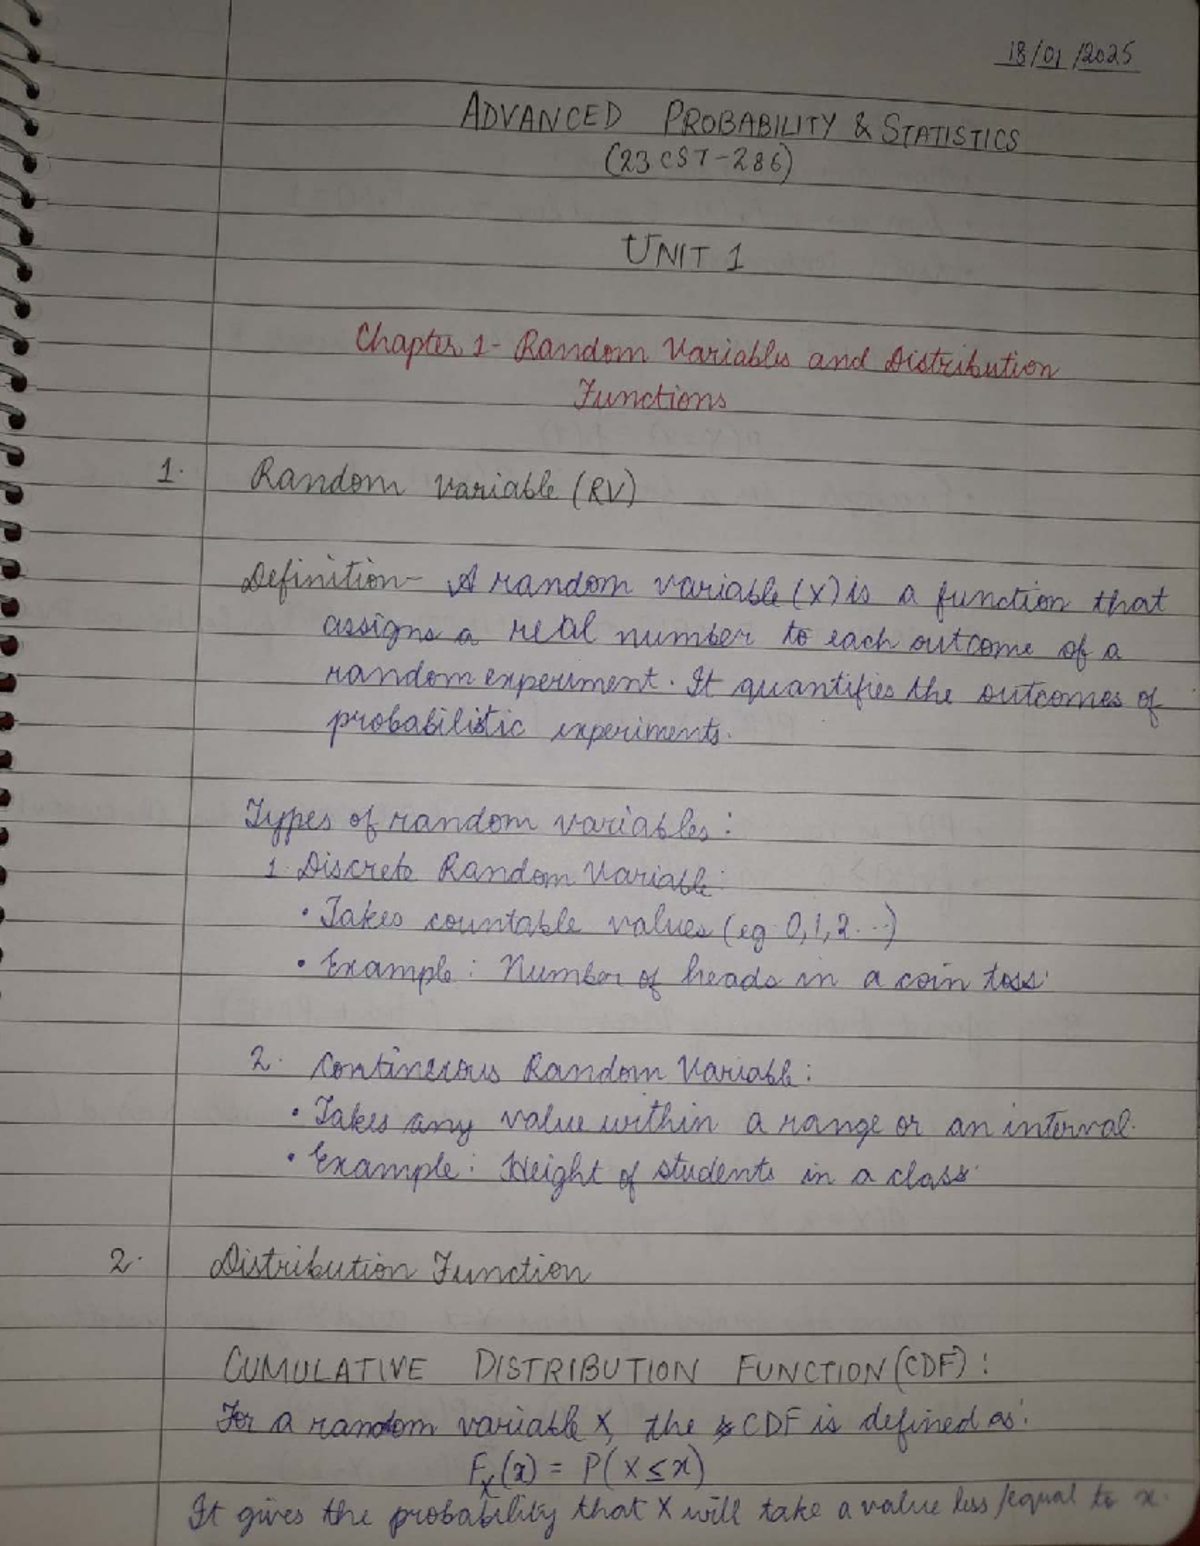 18/01/2025
ADVANCED PROBABILITY & STATISTICS
(23CST-286)
UNIT 1
Chapter 1- Random Variables and Distribution
Functions
1. Random Variable (RV)
Definition- A random variable (X) is a function that
assigns a real number to each outcome of a
random experiment. It quantifies the outcomes of
probabilistic experiments.
Types of random variables:
1. Discrete Random Variable:
• Takes countable values (eg. 0,1,2...)
• Example: Number of heads in a coin toss.
2. Continuous Random Variable:
• Takes any value within a range or an interval.
• Example: Height of students in a class.
2. Distribution Function
CUMULATIVE DISTRIBUTION FUNCTION (CDF):
For a random variable X, the CDF is defined as:
Fₓ(x) = P(X≤x)
It gives the probability that X will take a value less/equal to x.